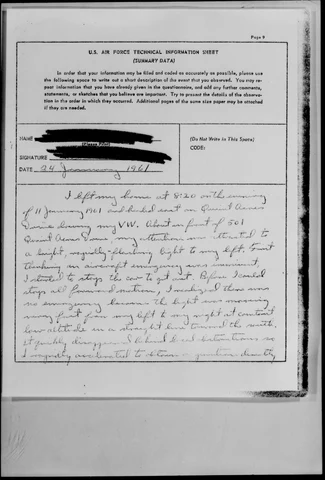 Page 8
U.S. AIR FORCE TECHNICAL INFORMATION SHEET
(SUMMARY DATA)
In order that your information may be filed and coded as accurately as possible, please use
the following space to write out a short description of the event that you observed. You may re-
peat information that you have already given in the questionnaire, and add any further comments,
statements, or sketches that you believe are important. Try to present the details of the observa-
tion in the order in which they occurred. Additional pages of the same size paper may be attached
if they are needed.
NAME
(Please Print)
(Do Not Write in This Space)
CODE:
SIGNATURE
DATE 24 January 1961
I left my home at 8:20 on the evening
of 11 January 1961 and headed east on Quiet Acres
Drive driving my VW. About in front of 501
Quiet Acres Drive my attention was attracted to
a bright, flashing light to my left. First
thinking an aircraft emergency was imminent,
I started to stop the car to get out. Before I could
stop all forward motion, I realized there was
no emergency because the light was moving
very fast from my left to my right at constant
low altitude in a straight line toward the south.
It quickly disappeared behind local obstructions so
I rapidly accelerated to obtain a